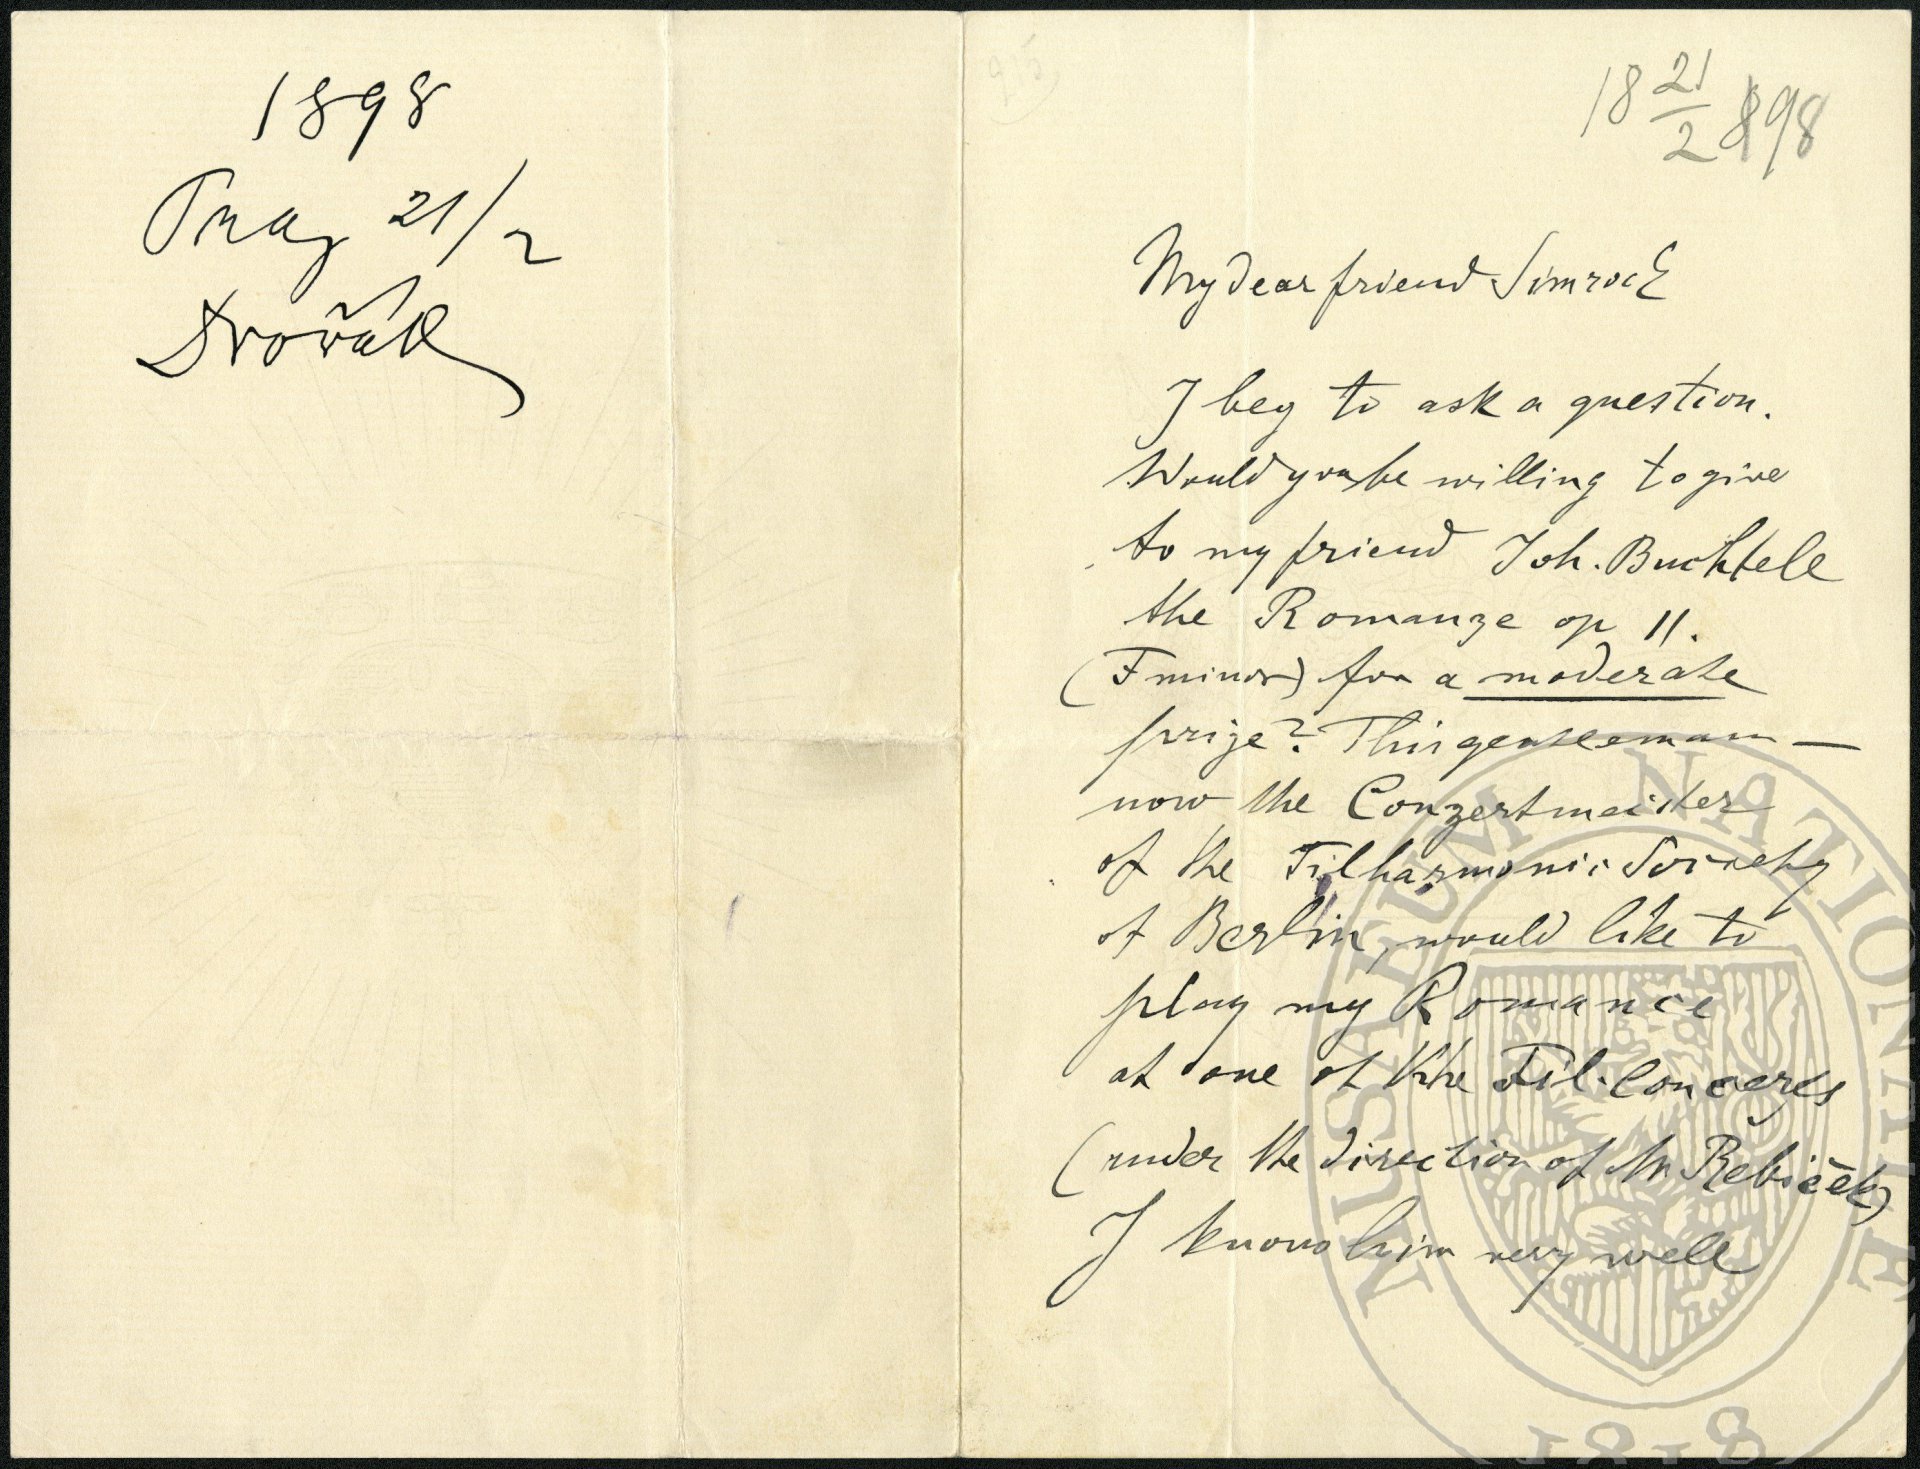 1898
Prag 21/2
Dvořák
18 21/2 898
My dear friend Simrock
I beg to ask a question.
Would you be willing to give
to my friend Joh. Buchtele
the Romanze op 11.
(F minor) for a moderate
prize? This gentlemann —
now the Conzertmeister
of the Filharmonic Society
of Berlin, would like to
play my Romance
at one of the Fil. Concerts
(under the direction of Mr. Řebíček)
I know him very well
MUSAEUM NATIONALE
1818